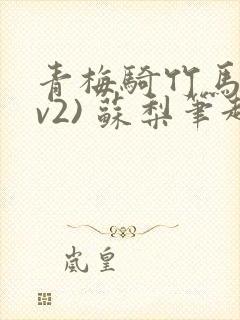 青梅騎竹馬
v2) 蘇梨筆趣
嵐皇